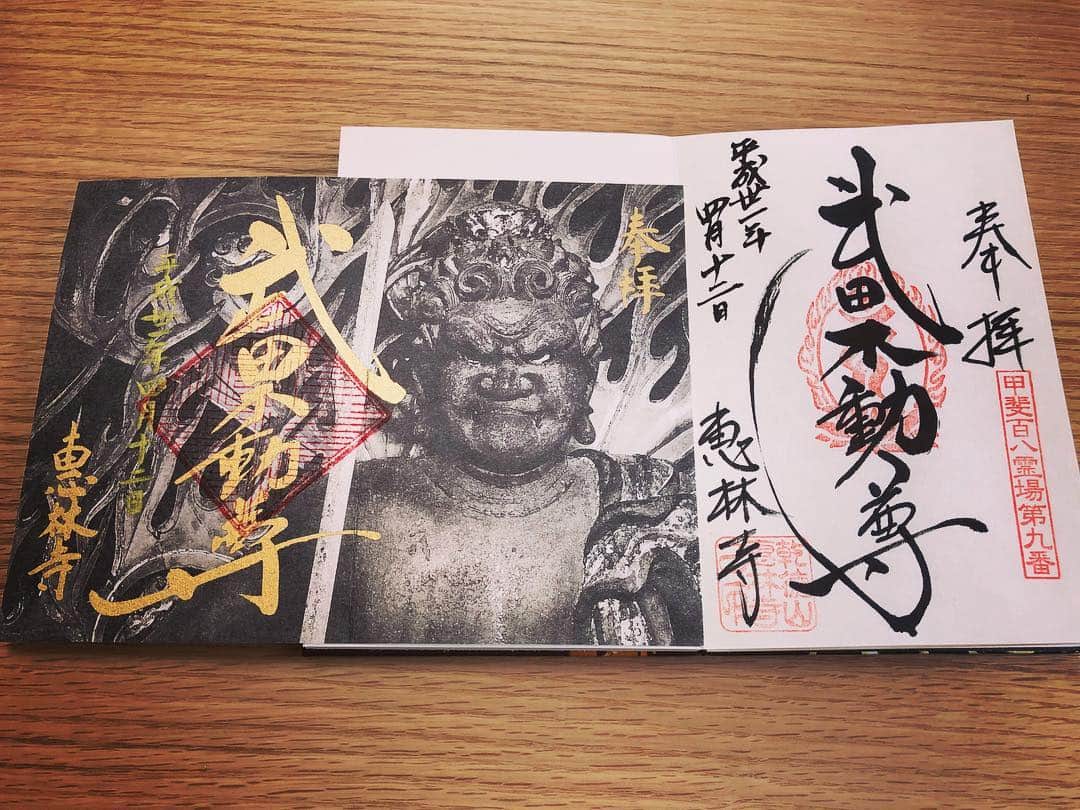 奉拝
甲斐百八霊場第九番
武田不動尊
平成丗一年
四月十二日
恵林寺
乾徳山
恵林寺
奉拝
武田不動尊
平成丗一年四月十二日
恵林寺